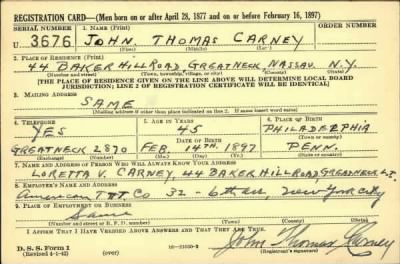 REGISTRATION CARD—(Men born on or after April 28, 1877 and on or before February 16, 1897)
SERIAL NUMBER 1. NAME (Print)
U 3676 JOHN THOMAS CARNEY
(First) (Middle) (Last)
2. PLACE OF RESIDENCE (Print)
44 BAKER HILL ROAD GREATNECK, NASSAU, N.Y.
(Number and street) (Town, township, village, or city) (County) (State)
[THE PLACE OF RESIDENCE GIVEN ON THE LINE ABOVE WILL DETERMINE LOCAL BOARD
JURISDICTION; LINE 2 OF REGISTRATION CERTIFICATE WILL BE IDENTICAL]
3. MAILING ADDRESS
SAME
(Mailing address if other than place indicated on line 2. If same insert word same)
4. TELEPHONE 5. AGE IN YEARS 6. PLACE OF BIRTH
YES 45 PHILADELPHIA
DATE OF BIRTH (Town or county)
GREATNECK 2870 FEB. 14TH. 1897 PENN.
(Exchange) (Number) (Mo.) (Day) (Yr.) (State or country)
7. NAME AND ADDRESS OF PERSON WHO WILL ALWAYS KNOW YOUR ADDRESS
LORETTA V. CARNEY, 44 BAKER HILL ROAD GREATNECK L.I.
8. EMPLOYER'S NAME AND ADDRESS
American T & T Co 32 - 6th ave, New York City
9. PLACE OF EMPLOYMENT OR BUSINESS
Same
(Number and street or R. F. D. number) (Town) (County) (State)
I AFFIRM THAT I HAVE VERIFIED ABOVE ANSWERS AND THAT THEY ARE TRUE.
D. S. S. Form 1
(Revised 4-1-42) (over)
John Thomas Carney
(Registrant's signature)